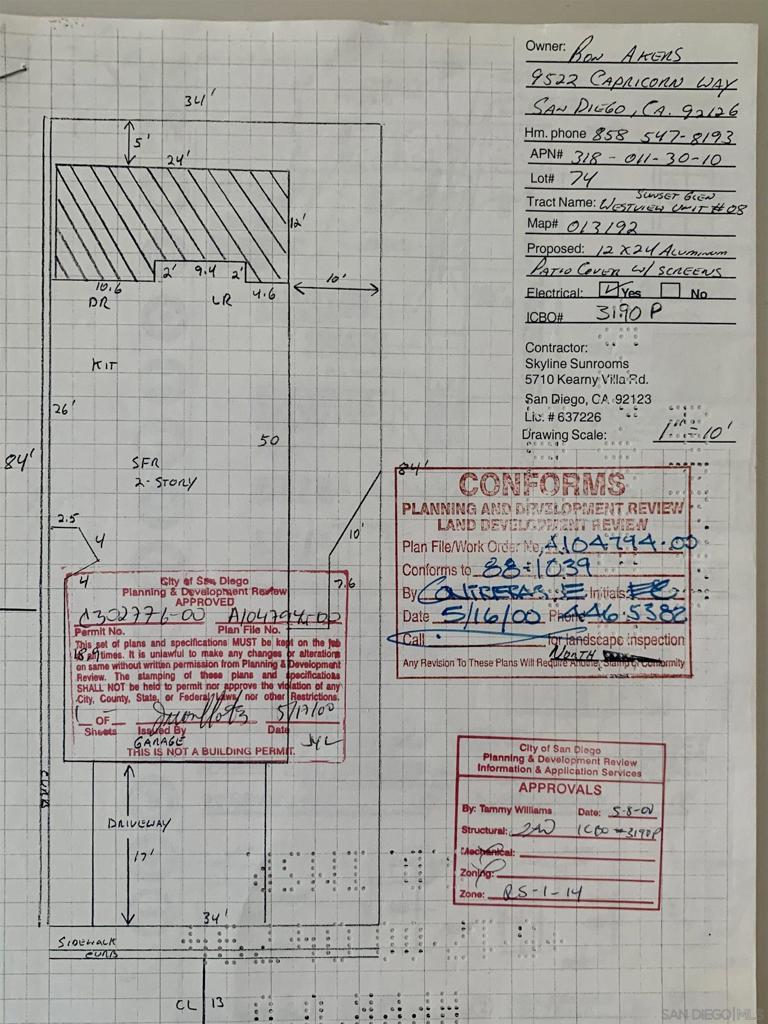 Owner: RON AKERS
9522 CAPRICORN WAY
SAN DIEGO, CA. 92126
Hm. phone 858 547-8193
APN# 318-011-30-10
Lot# 74
SUNSET GLEN
Tract Name: WESTVIEW UNIT #08
Map# 013192
Proposed: 12 X 24 ALUMINUM
PATIO COVER W/ SCREENS
Electrical: Yes No
ICBO# 3190 P
Contractor:
Skyline Sunrooms
5710 Kearny Villa Rd.
San Diego, CA 92123
Lic. # 637226
Drawing Scale: 1" = 10'
34'
5'
24'
12'
2' 9.4 2'
10.6
4.6
10'
DR LR
KIT
26'
50
84'
84'
SFR
2-STORY
2.5
4
10'
4
7.6
City of San Diego
Planning & Development Review
APPROVED
A302776-00 A104794-00
Permit No. Plan File No.
This set of plans and specifications MUST be kept on the job
at all times. It is unlawful to make any changes or alterations
on same without written permission from Planning & Development
Review. The stamping of these plans and specifications
SHALL NOT be held to permit nor approve the violation of any
City, County, State, or Federal laws nor other Restrictions.
1 OF 5/17/00
Sheets Issued By Date
GARAGE
THIS IS NOT A BUILDING PERMIT.
CONFORMS
PLANNING AND DEVELOPMENT REVIEW
LAND DEVELOPMENT REVIEW
Plan File/Work Order No. A104794-00
Conforms to 88-1039
By CONTRERAS E Initials EC
Date 5/16/00 Phone 446-5382
Call for landscape inspection
NORTH
Any Revision To These Plans Will Require Another Stamp of Conformity
City of San Diego
Planning & Development Review
Information & Application Services
APPROVALS
By: Tammy Williams Date: 5-8-00
Structural: ICBO #3190P
Mechanical:
Zoning:
Zone: RS-1-14
CURB
DRIVEWAY
17'
34'
SIDEWALK
CURB
CL 13
SAN DIEGO|MLS